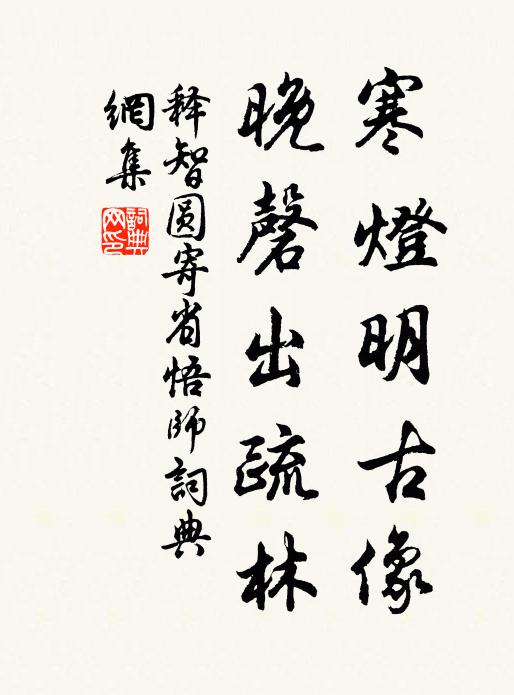 寒燈明古像
晚磬出疏林
释智圆寄省悟師詞典
網集
詞典網印